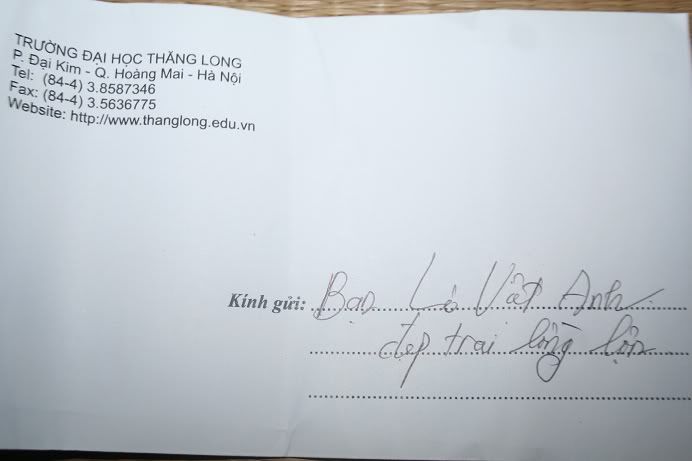 TRƯỜNG ĐẠI HỌC THĂNG LONG
P. Đại Kim - Q. Hoàng Mai - Hà Nội
Tel: (84-4) 3.8587346
Fax: (84-4) 3.5636775
Website: http://www.thanglong.edu.vn
Kính gửi: Bạn Lê Việt Anh
đẹp trai lồng lộn